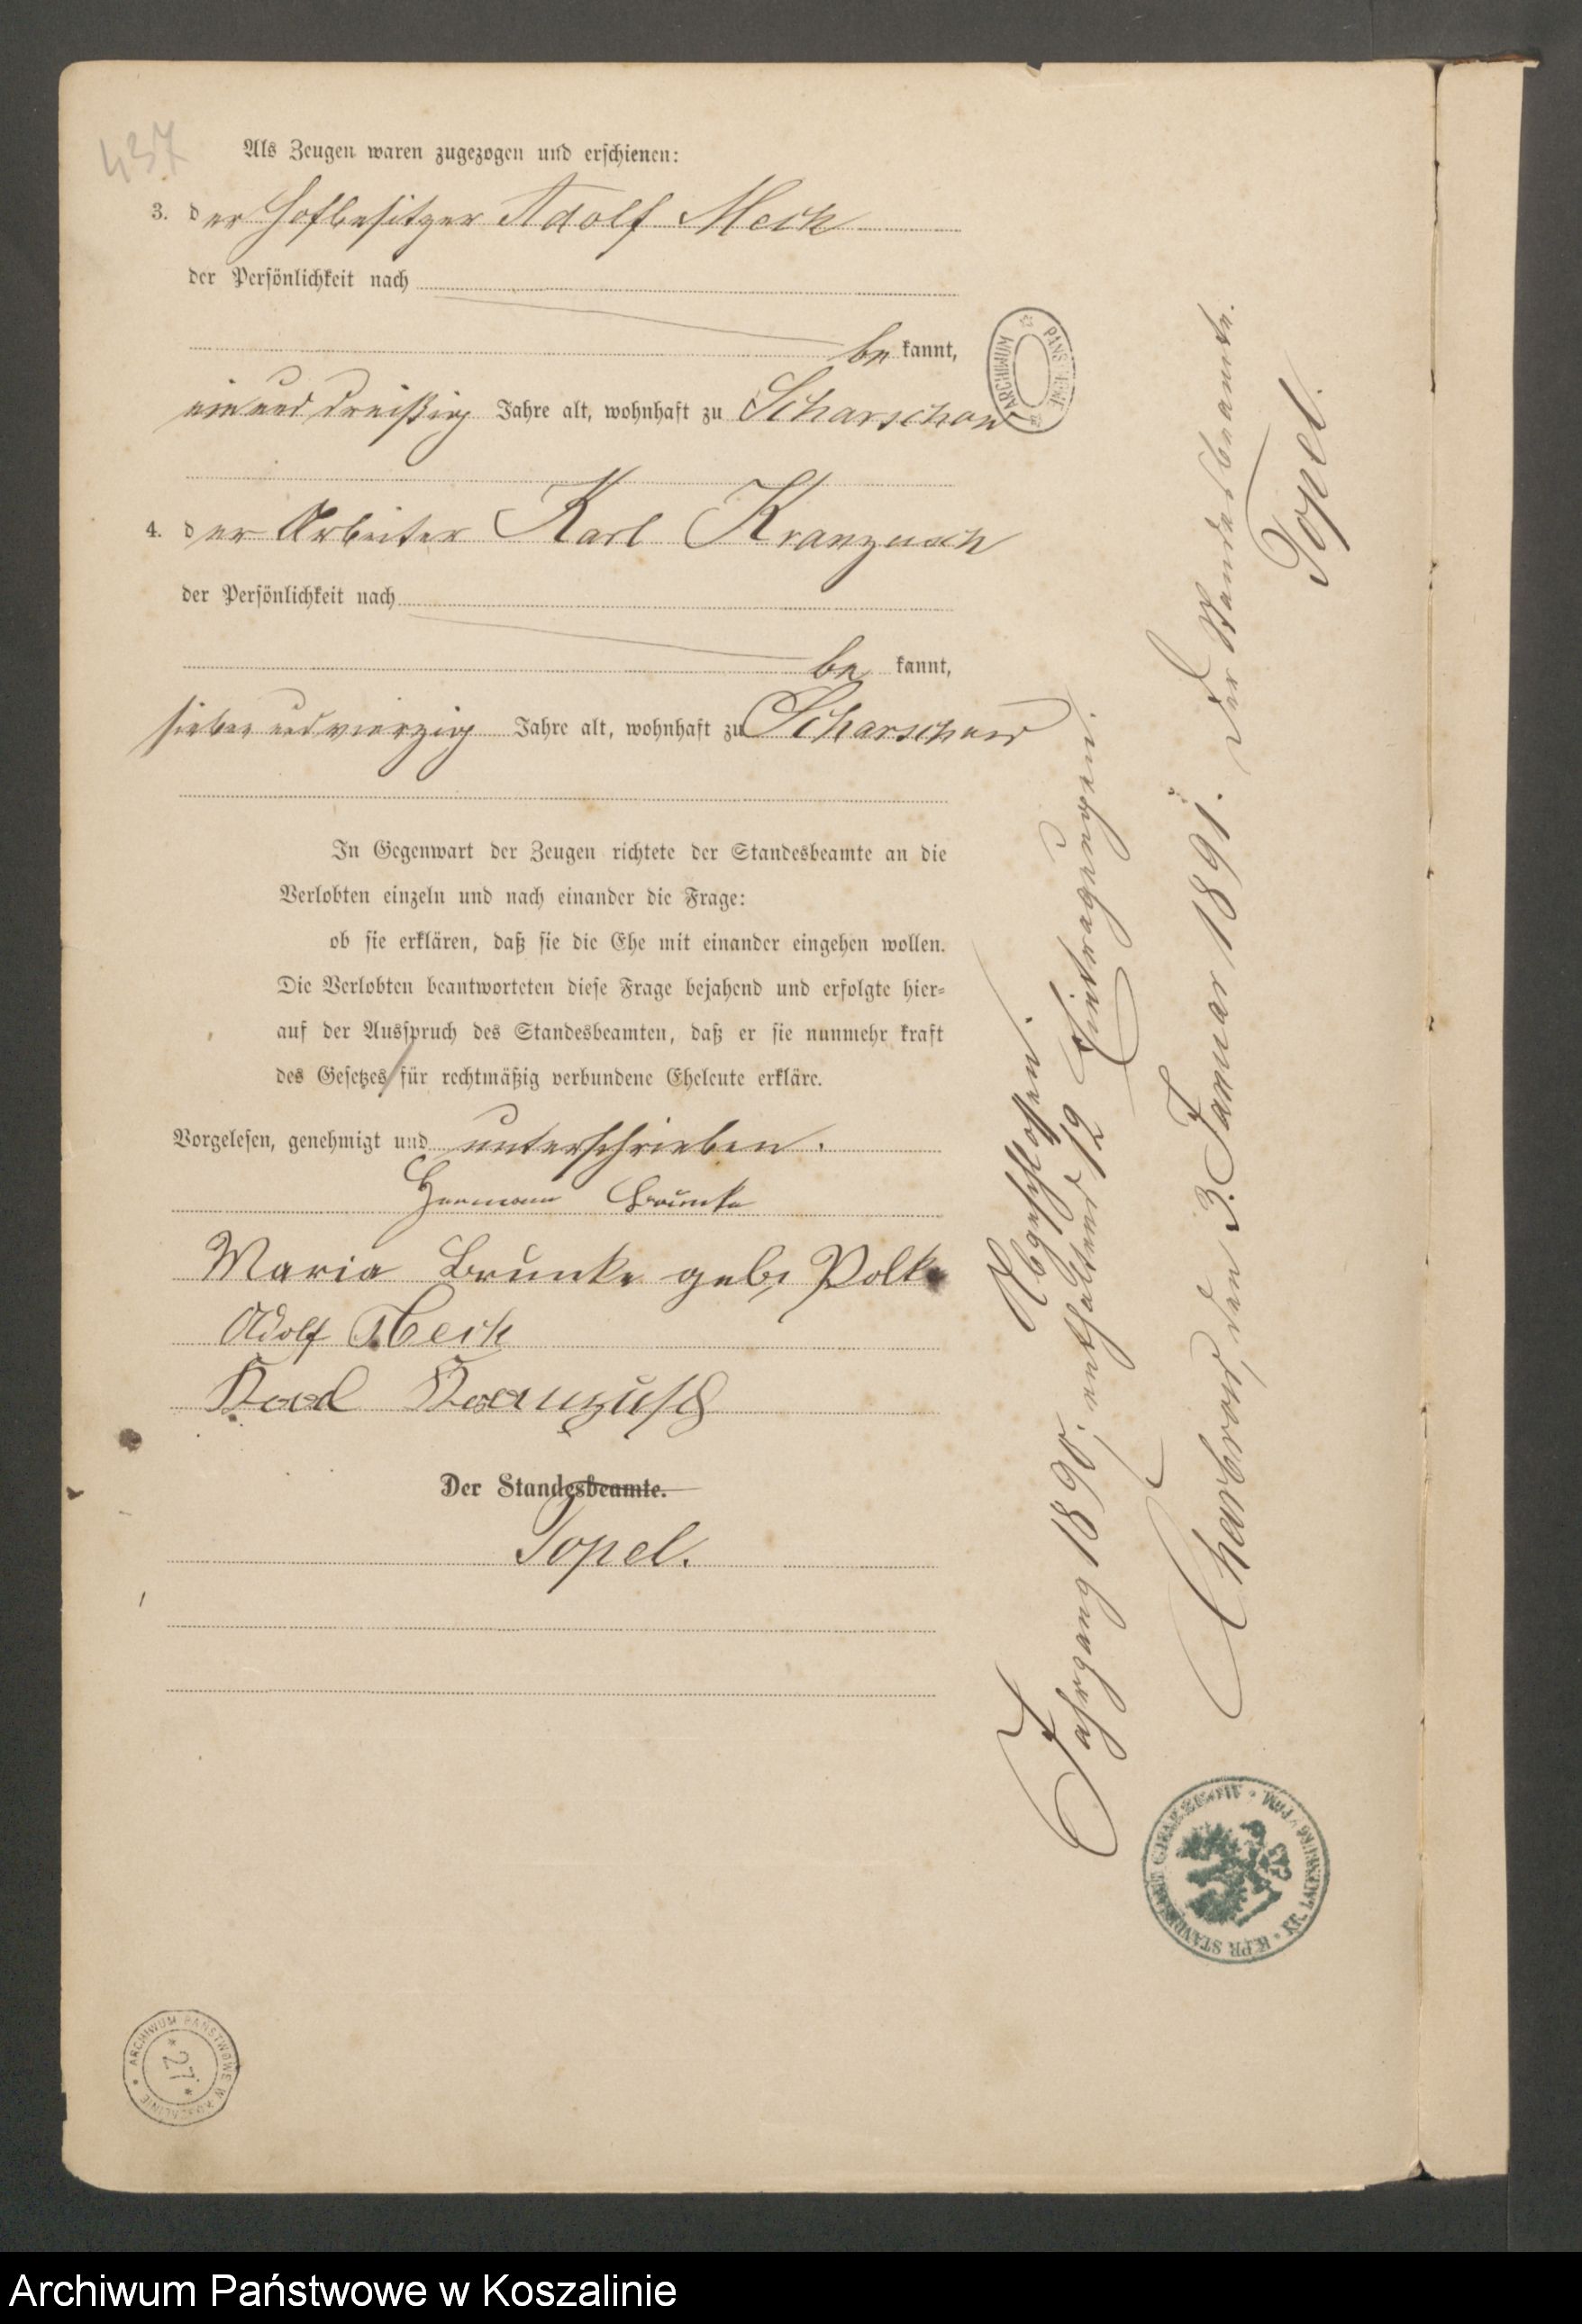 437
Als Zeugen waren zugezogen und erschienen:
3. der Hofbesitzer Adolf Meik
der Persönlichkeit nach
be kannt,
ein und dreißig Jahre alt, wohnhaft zu Scharschow
4. der Arbeiter Karl Kranzusch
der Persönlichkeit nach
be kannt,
sieben und vierzig Jahre alt, wohnhaft zu Scharschow
In Gegenwart der Zeugen richtete der Standesbeamte an die
Verlobten einzeln und nach einander die Frage:
ob sie erklären, daß sie die Ehe mit einander eingehen wollen.
Die Verlobten beantworteten diese Frage bejahend und erfolgte hier=
auf der Ausspruch des Standesbeamten, daß er sie nunmehr kraft
des Gesetzes für rechtmäßig verbundene Eheleute erkläre.
Vorgelesen, genehmigt und unterschrieben.
Hermann Brunke
Maria Brunke geb. Polk
Adolf Meik
Karl Kranzusch
Der Standesbeamte.
Topel.
Abgeschlossen.
Jahrgang 1890, enthaltend 12 Eintragungen.
Charbrow, den 3. Januar 1891. Der Standesbeamte.
Topel.
ARCHIWUM PAŃSTWOWE
K. PR. STANDESAMT
ARCHIWUM PAŃSTWOWE W KOSZALINIE
* 27 *
Archiwum Państwowe w Koszalinie